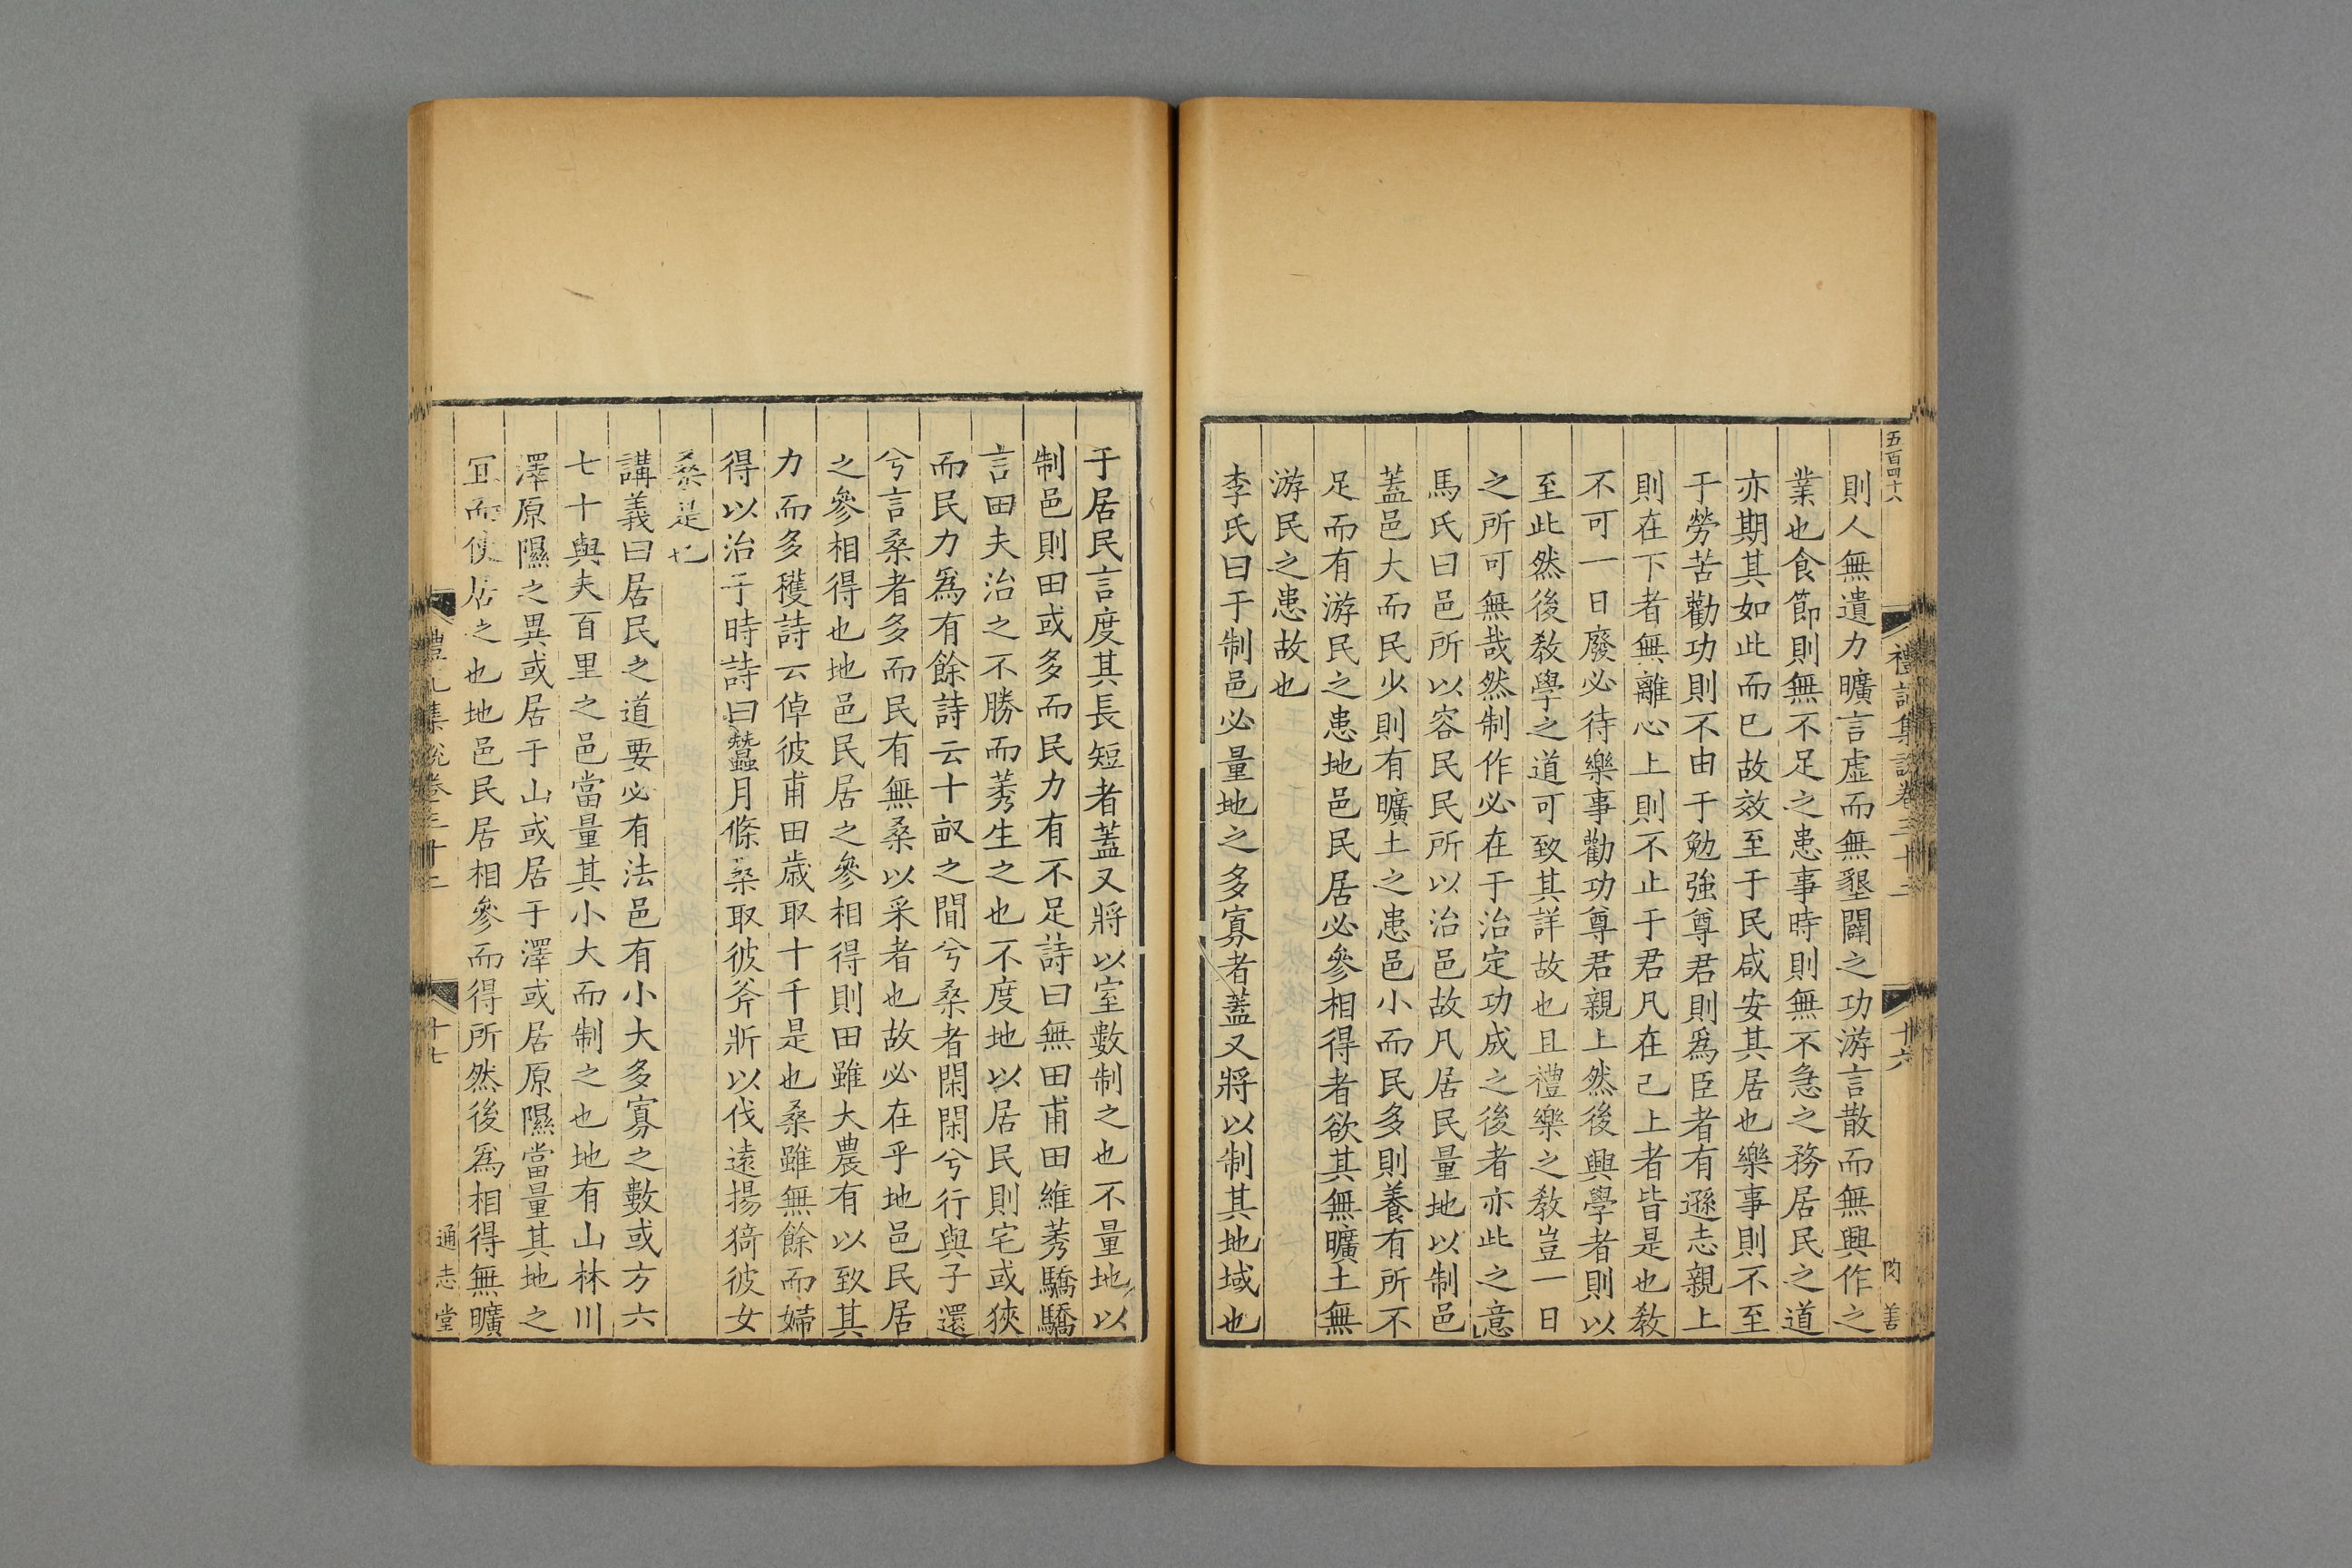 五百四十六
禮記集說卷三十二
十六
則人無遺力曠言虛而無墾闢之功游言散而無興作之
業也食節則無不足之患事時則無不急之務居民之道
亦期其如此而已故效至于民咸安其居也樂事則不至
于勞苦勸功則不由于勉強尊君則爲臣者有遜志親上
則在下者無離心上則不止于君凡在己上者皆是也教
不可一日廢必待樂事勸功尊君親上然後興學者則以
至此然後教學之道可致其詳故也且禮樂之教豈一日
之所可無哉然制作必在于治定功成之後者亦此之意
馬氏曰邑所以容民民所以治邑故凡居民量地以制邑
蓋邑大而民少則有曠土之患邑小而民多則養有所不
足而有游民之患地邑民居必參相得者欲其無曠土無
游民之患故也
李氏曰于制邑必量地之多寡者蓋又將以制其地域也
于居民言度其長短者蓋又將以室數制之也不量地以
制邑則田或多而民力有不足詩曰無田甫田維莠驕驕
言田夫治之不勝而莠生之也不度地以居民則宅或狹
而民力爲有餘詩云十畝之間兮桑者閑閑兮行與子還
兮言桑者多而民有無桑以采者也故必在乎地邑民居
之參相得也地邑民居之參相得則田雖大農有以致其
力而多穫詩云倬彼甫田歲取十千是也桑雖無餘而婦
得以治于時詩曰蠶月條桑取彼斧斨以伐遠揚猗彼女
桑是也
講義曰居民之道要必有法邑有小大多寡之數或方六
七十與夫百里之邑當量其小大而制之也地有山林川
澤原隰之異或居于山或居于澤或居原隰當量其地之
宜而使居之也地邑民居相參而得所然後爲相得無曠
禮記集說卷三十二
十七
通志堂